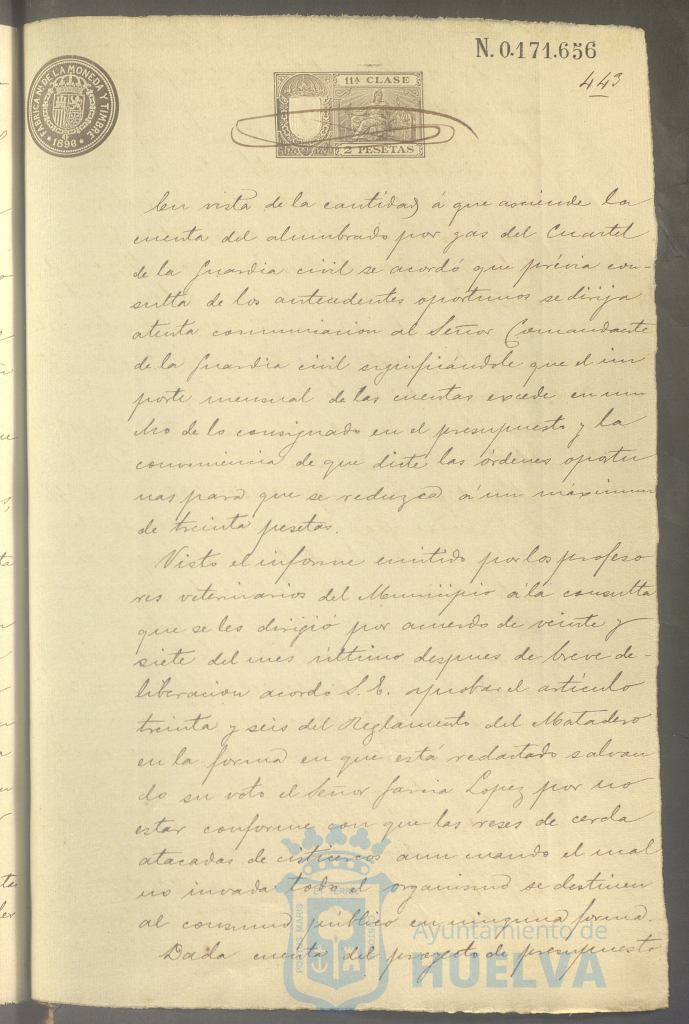 N. 0.171.656
443
FABRICA NAL DE LA MONEDA Y TIMBRE
1896
11ª CLASE
2 PESETAS
En vista de la cantidad á que asciende la
cuenta del alumbrado por gas del Cuartel
de la Guardia civil se acordó que prévia con-
sulta de los antecedentes oportunos se dirija
atenta comunicacion al Señor Comandante
de la Guardia civil significándole que el im
porte mensual de las cuentas excede en mu
cho de lo consignado en el presupuesto y la
conveniencia de que dicte las órdenes oportu
nas para que se reduzca á un máximum
de treinta pesetas.
Visto el informe emitido por los profeso
res veterinarios del Municipio á la consulta
que se les dirigió por acuerdo de veinte y
siete del mes último despues de breve de-
liberacion acordó S. E. aprobar el artículo
treinta y seis del Reglamento del Matadero
en la forma en que está redactado salvan
do su voto el Señor Garcia Lopez por no
estar conforme con que las reses de cerda
atacadas de cisticercos aun cuando el mal
no invada todo el organismo se destinen
al consumo público en ninguna forma.
Dada cuenta del proyecto de presupuesto
Ayuntamiento de
HUELVA